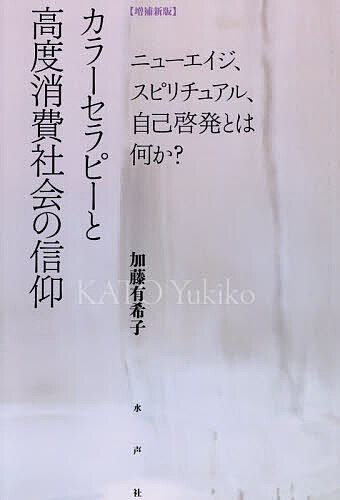 【増補新版】
カラーセラピーと
高度消費社会の信仰
ニューエイジ、
スピリチュアル、
自己啓発とは
何か?
加藤有希子
KATO Yukiko
水声社